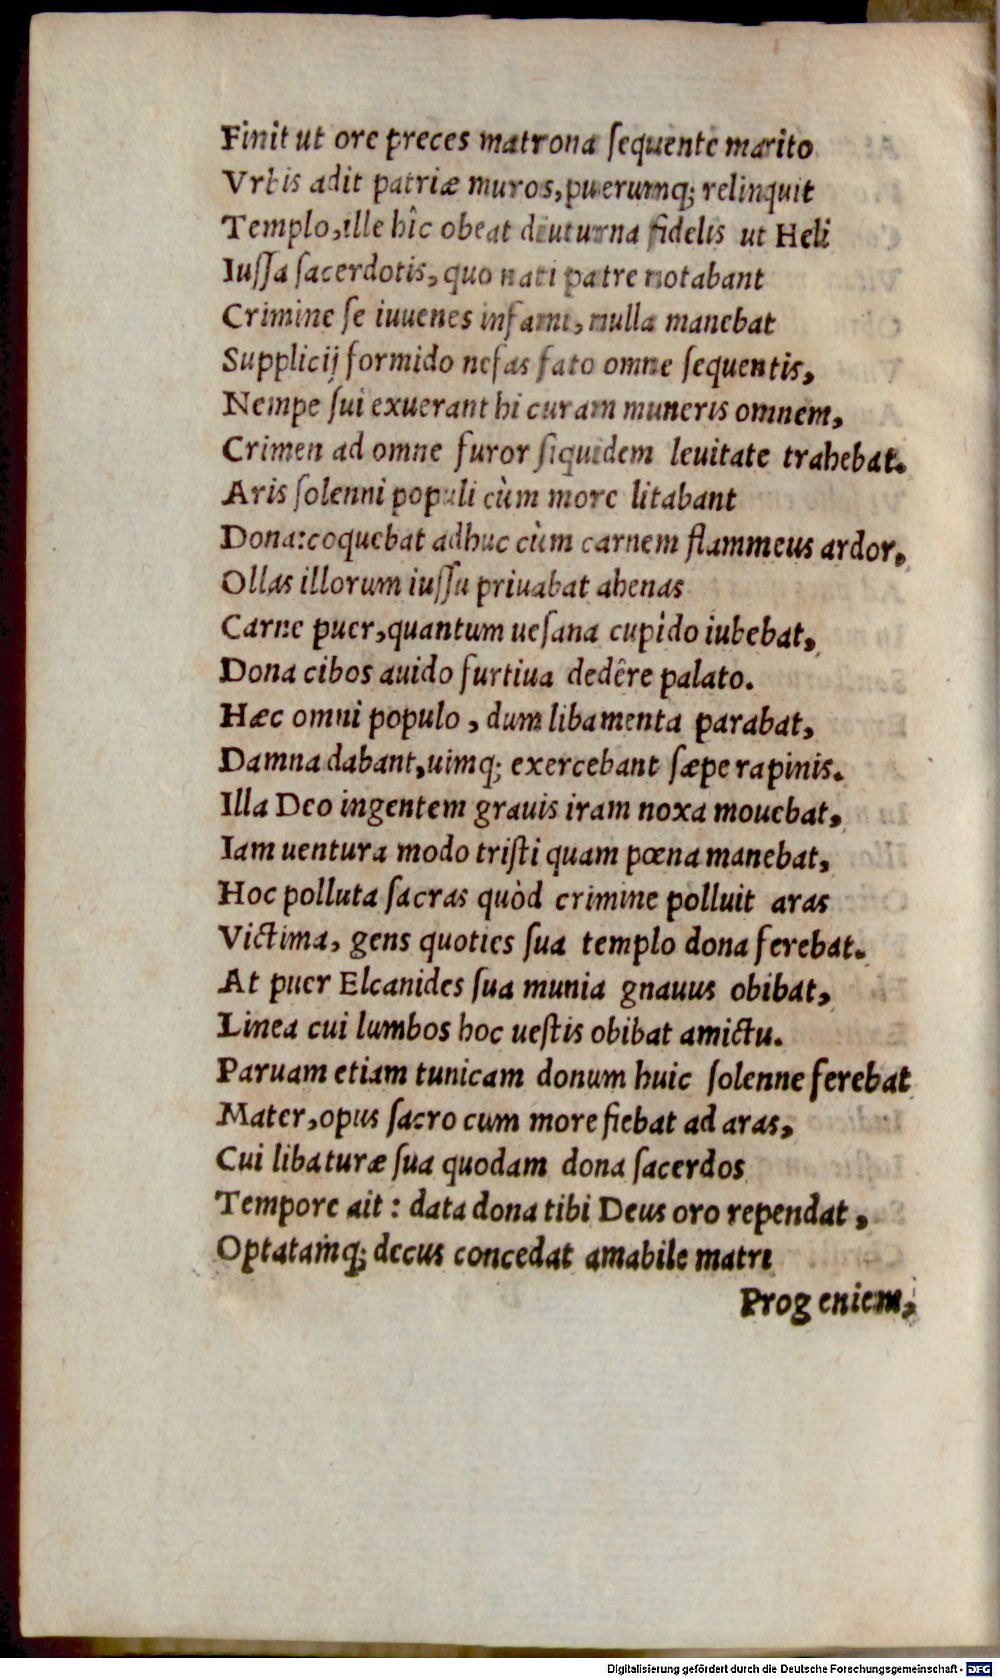 Finit ut ore preces matrona ſequente marito
Vrbis adit patriæ muros, puerumq; relinquit
Templo, ille hîc obeat diuturna fidelis ut Heli
Iuſſa ſacerdotis, quo nati patre notabant
Crimine ſe iuuenes infami, nulla manebat
Supplicij formido nefas fato omne ſequentis,
Nempe ſui exuerant hi curam muneris omnem,
Crimen ad omne furor ſiquidem leuitate trahebat.
Aris ſolenni populi cùm more litabant
Dona: coquebat adhuc cùm carnem flammeus ardor,
Ollas illorum iuſſu priuabat ahenas
Carne puer, quantum ueſana cupido iubebat,
Dona cibos auido furtiua dedêre palato.
Hæc omni populo, dum libamenta parabat,
Damna dabant, uimq; exercebant ſæpe rapinis.
Illa Deo ingentem grauis iram noxa mouebat,
Iam uentura modo triſti quam pœna manebat,
Hoc polluta ſacras quòd crimine polluit aras
Victima, gens quoties ſua templo dona ferebat.
At puer Elcanides ſua munia gnauus obibat,
Linea cui lumbos hoc ueſtis obibat amictu.
Paruam etiam tunicam donum huic ſolenne ferebat
Mater, opus ſacro cum more fiebat ad aras,
Cui libaturæ ſua quodam dona ſacerdos
Tempore ait: data dona tibi Deus oro rependat,
Optatamq; decus concedat amabile matri
Prog eniem,
Digitalisierung gefördert durch die Deutsche Forschungsgemeinschaft - DFG